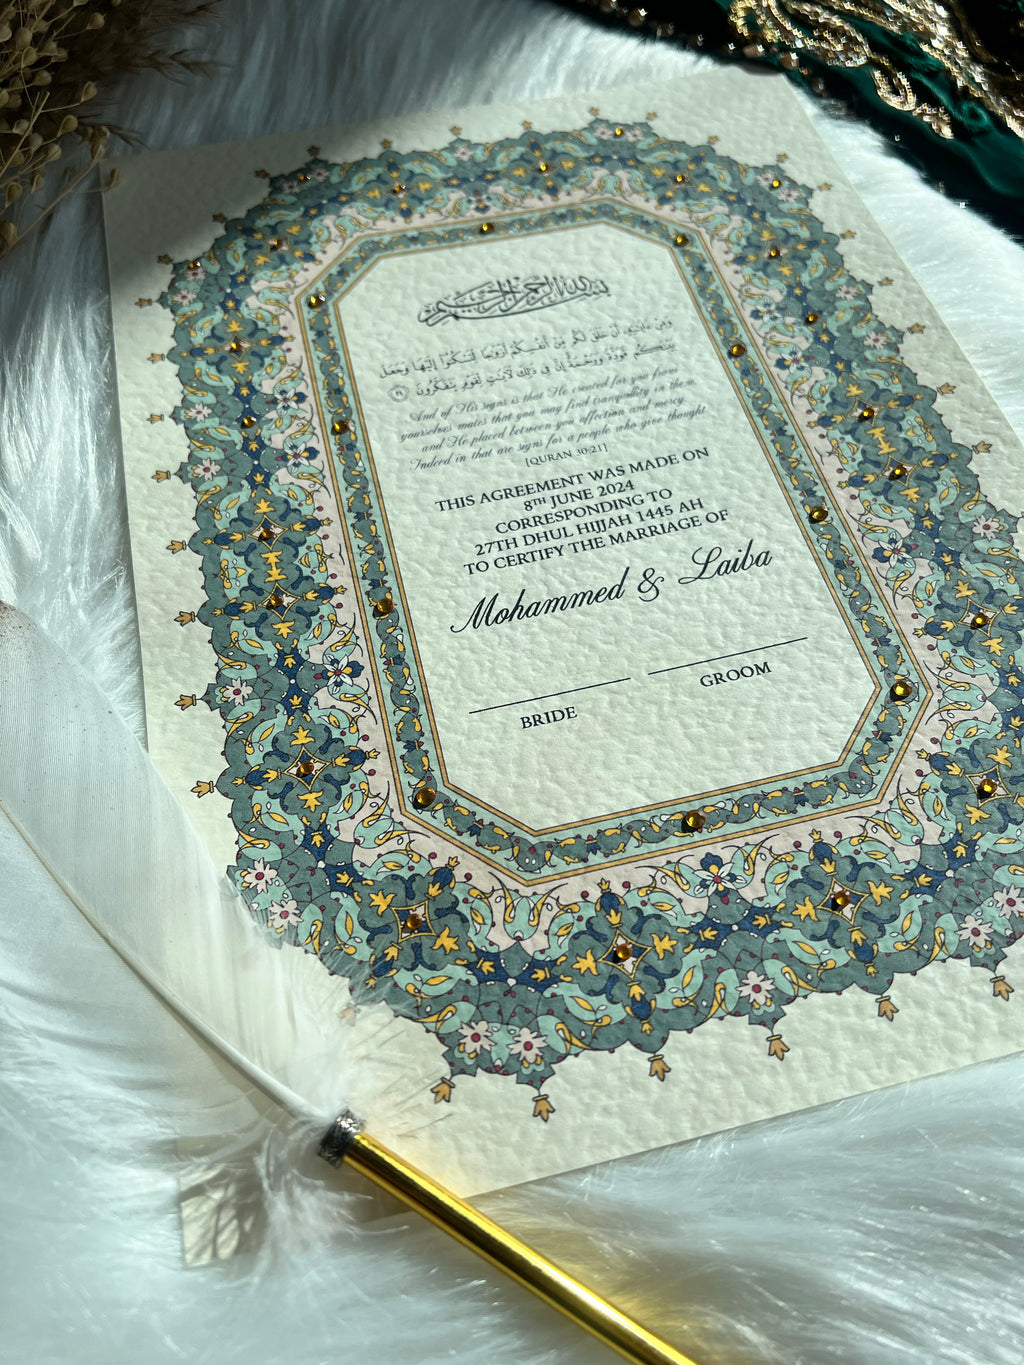 بسم الله الرحمن الرحيم
وَمِنْ ءَايَٰتِهِۦٓ أَنْ خَلَقَ لَكُم مِّنْ أَنفُسِكُمْ أَزْوَٰجًا لِّتَسْكُنُوٓا۟ إِلَيْهَا وَجَعَلَ
بَيْنَكُم مَّوَدَّةً وَرَحْمَةً إِنَّ فِى ذَٰلِكَ لَءَايَٰتٍ لِّقَوْمٍ يَتَفَكَّرُونَ ٢١
And of His signs is that He created for you from
yourselves mates that you may find tranquility in them,
and He placed between you affection and mercy.
Indeed in that are signs for a people who give thought.
[QURAN 30:21]
THIS AGREEMENT WAS MADE ON
8TH JUNE 2024
CORRESPONDING TO
27TH DHUL HIJJAH 1445 AH
TO CERTIFY THE MARRIAGE OF
Mohammed & Laiba
BRIDE GROOM